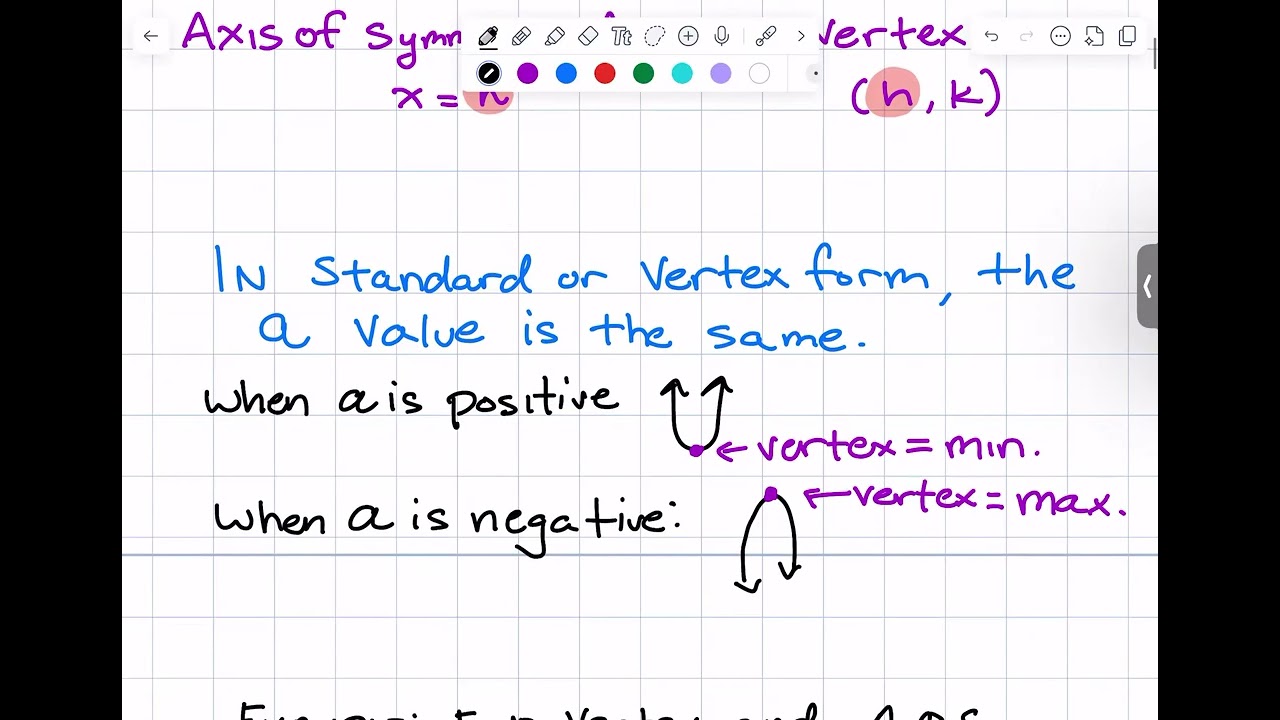 Axis of Symm vertex
x = h (h, k)
IN Standard or Vertex form, the
a value is the same.
when a is positive
← vertex = min.
← vertex = max.
when a is negative:
Vertex and AOS